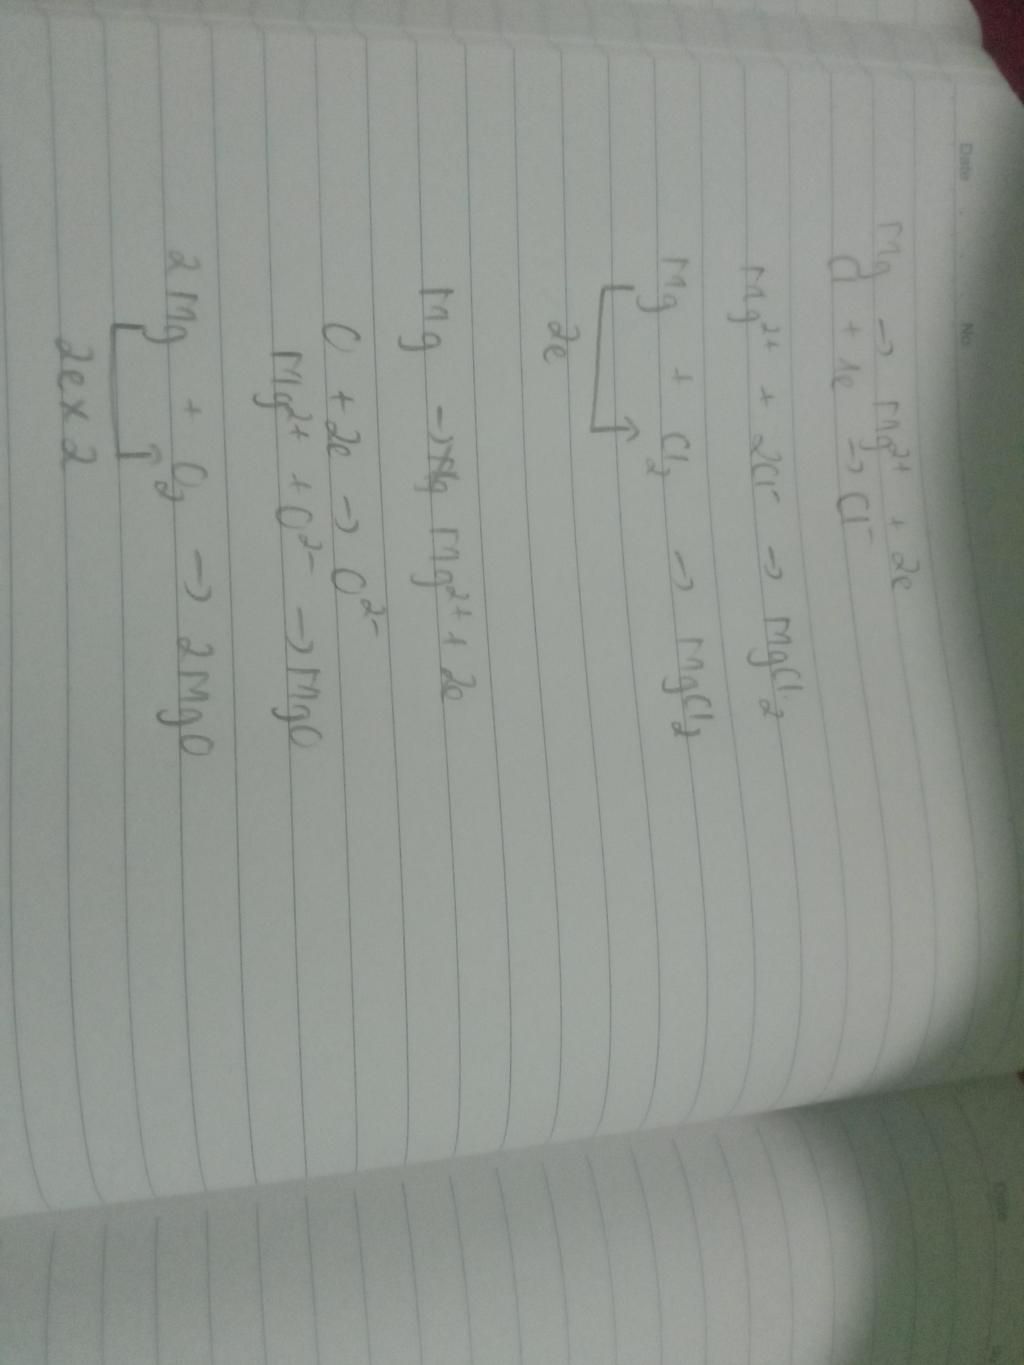 Date
No
Mg → Mg²⁺ + 2e
Cl + 1e → Cl⁻
Mg²⁺ + 2Cl⁻ → MgCl₂
Mg + Cl₂ → MgCl₂
2e
Mg → Mg²⁺ + 2e
O + 2e → O²⁻
Mg²⁺ + O²⁻ → MgO
2Mg + O₂ → 2MgO
2e×2